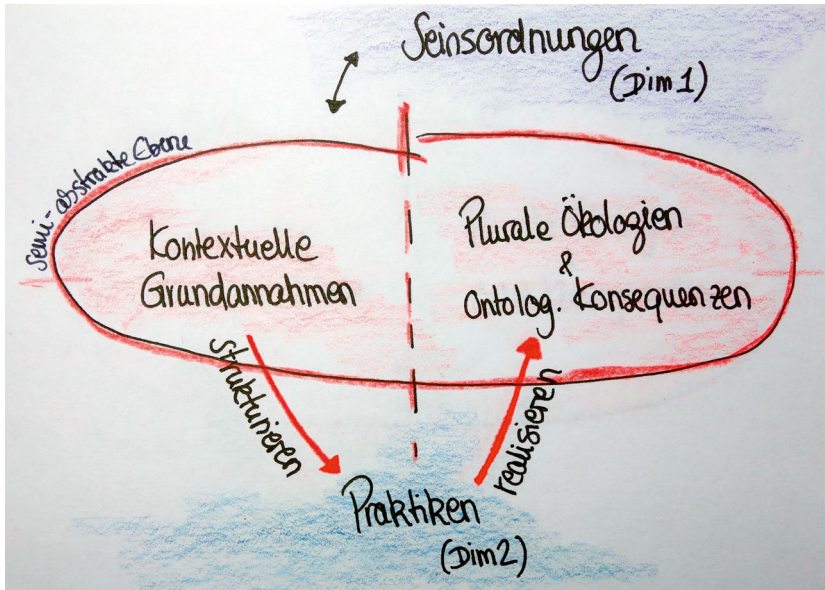 Seinsordnungen
(Dim 1)
Semi-abstrakte Ebene
Kontextuelle
Grundannahmen
Plurale Ökologien
&
Ontolog. Konsequenzen
strukturieren
realisieren
Praktiken
(Dim 2)